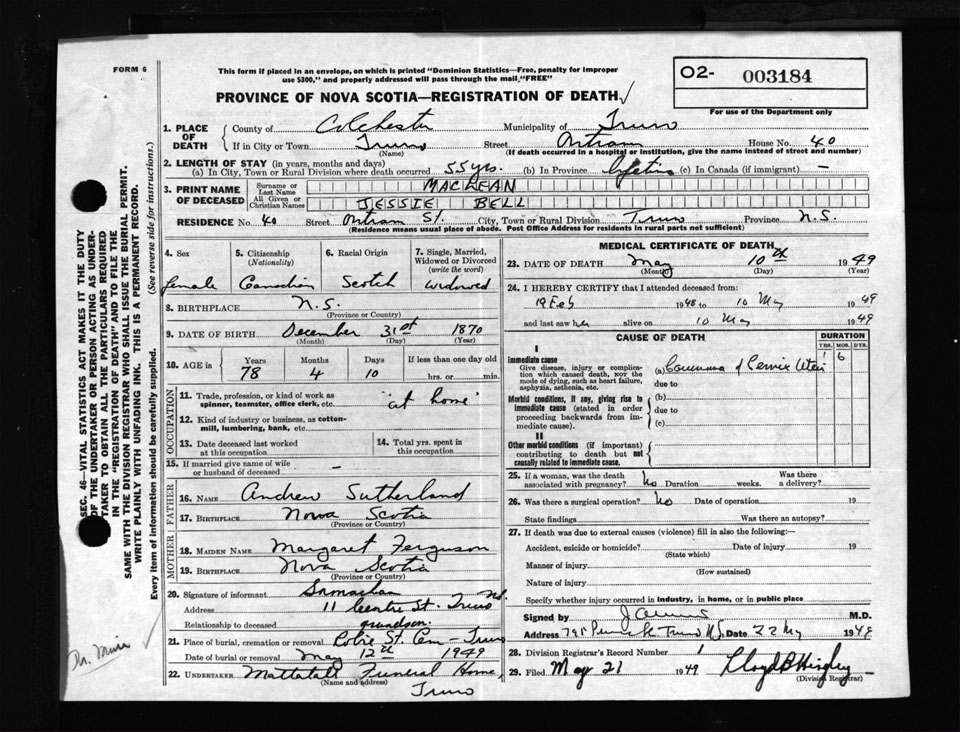 FORM 6
This form if placed in an envelope, on which is printed "Dominion Statistics—Free, penalty for improper
use $300," and properly addressed will pass through the mail "FREE"
O2- 003184
For use of the Department only
PROVINCE OF NOVA SCOTIA—REGISTRATION OF DEATH
1. PLACE OF DEATH County of Colchester Municipality of Truro
If in City or Town Truro Street House No. 40
(Name) (If death occurred in a hospital or institution, give the name instead of street and number)
2. LENGTH OF STAY (in years, months and days)
(a) In City, Town or Rural Division where death occurred 55 yrs. (b) In Province lifetime (c) In Canada (if immigrant) —
3. PRINT NAME OF DECEASED Surname or Last Name MACLEAN
All Given or Christian Names JESSIE BELL
RESIDENCE No. 40 Street St. City, Town or Rural Division Truro Province N.S.
(Residence means usual place of abode. Post Office Address for residents in rural parts not sufficient)
4. Sex 5. Citizenship (Nationality) 6. Racial Origin 7. Single, Married, Widowed or Divorced (write the word)
female Canadian Scotch widowed
8. BIRTHPLACE N.S.
(Province or Country)
9. DATE OF BIRTH December 31st 1870
(Month) (Day) (Year)
10. AGE in Years Months Days If less than one day old
78 4 10 hrs. or min.
OCCUPATION
11. Trade, profession, or kind of work as spinner, teamster, office clerk, etc. "at home"
12. Kind of industry or business, as cotton-mill, lumbering, bank, etc.
13. Date deceased last worked at this occupation
14. Total yrs. spent in this occupation
15. If married give name of wife or husband of deceased —
FATHER
16. NAME Andrew Sutherland
17. BIRTHPLACE Nova Scotia
(Province or Country)
MOTHER
18. MAIDEN NAME Margaret Ferguson
19. BIRTHPLACE Nova Scotia
(Province or Country)
20. Signature of informant
Address 11 St. Truro NS
Relationship to deceased grandson
21. Place of burial, cremation or removal Robie St. Cem — Truro
Date of burial or removal May 12th 1949
22. UNDERTAKER Mattatall Funeral Home,
(Name and address)
Truro
MEDICAL CERTIFICATE OF DEATH
23. DATE OF DEATH May 10th 1949
(Month) (Day) (Year)
24. I HEREBY CERTIFY that I attended deceased from:
19 Feb 1948 to 10 May 1949
and last saw her alive on 10 May 1949
CAUSE OF DEATH DURATION
YRS. MOS. DYS.
I
Immediate cause
Give disease, injury or complication which caused death, not the mode of dying, such as heart failure, asphyxia, asthenia, etc.
(a) of Cervix Uteri 1 6
due to
Morbid conditions, if any, giving rise to immediate cause (stated in order proceeding backwards from immediate cause)
(b)
due to
(c)
II
Other morbid conditions (if important) contributing to death but not causally related to immediate cause.
25. If a woman, was the death associated with pregnancy? No Duration weeks. Was there a delivery?
26. Was there a surgical operation? No Date of operation 19
State findings Was there an autopsy?
27. If death was due to external causes (violence) fill in also the following:—
Accident, suicide or homicide? Date of injury 19
(State which)
Manner of injury
(How sustained)
Nature of injury
Specify whether injury occurred in industry, in home, or in public place
Signed by M.D.
Address Truro N.S. Date 22 May 1948
28. Division Registrar's Record Number 1
29. Filed May 21 1949 Lloyd B Hingley
(Division Registrar)
SEC. 46—VITAL STATISTICS ACT MAKES IT THE DUTY
OF THE UNDERTAKER OR PERSON ACTING AS UNDER-
TAKER TO OBTAIN ALL THE PARTICULARS REQUIRED
IN THE "REGISTRATION OF DEATH" AND TO FILE THE
SAME WITH THE DIVISION REGISTRAR WHO SHALL ISSUE THE BURIAL PERMIT.
WRITE PLAINLY WITH UNFADING INK. THIS IS A PERMANENT RECORD.
Every item of information should be carefully supplied. (See reverse side for instructions.)